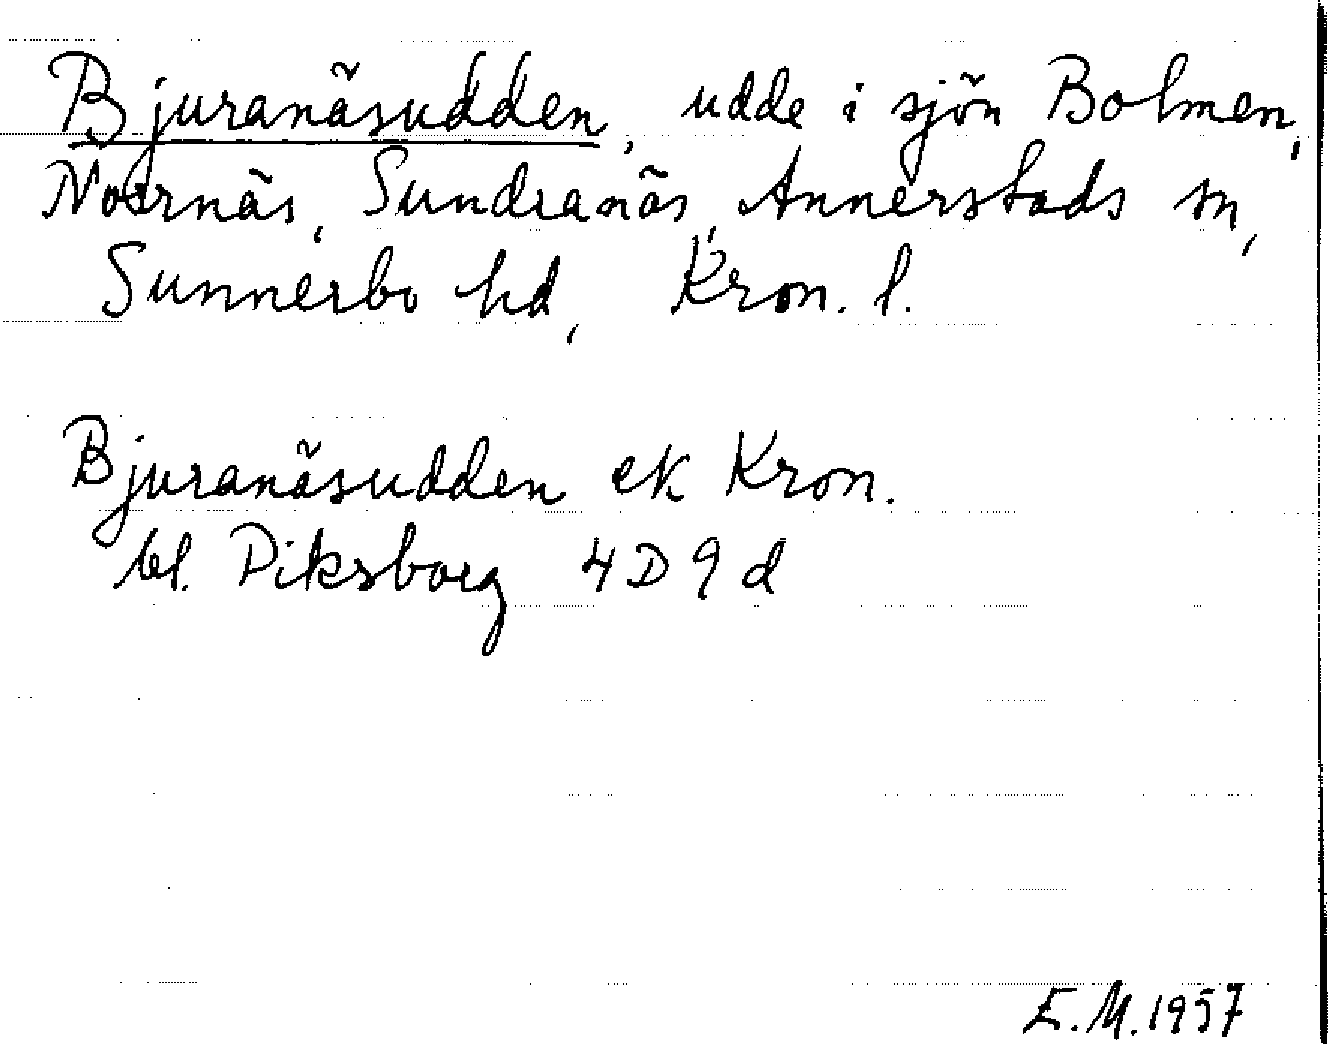 Bjuranäsudden, udde i sjön Bolmen,
Norrnäs, Sundranäs, Annerstads sn,
Sunnerbo hd, Kron. l.
Bjuranäsudden ek Kron.
bl. Piksborg 4D9d
E.M.1957